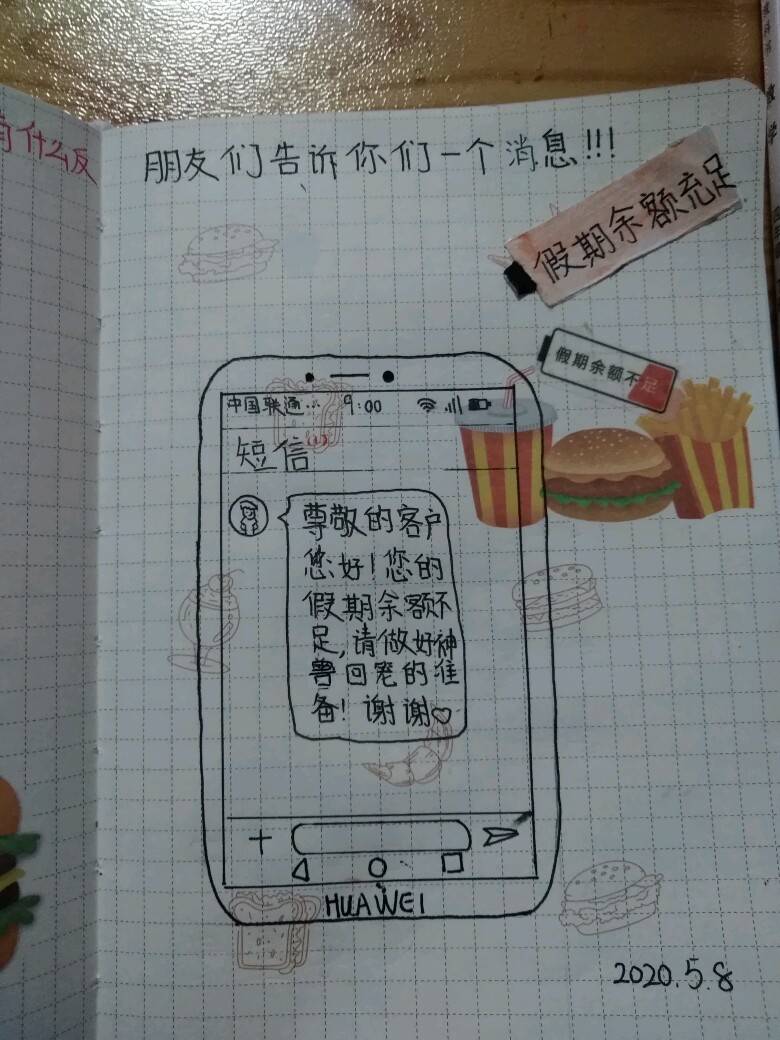 有什么反
朋友们告诉你们一个消息!!!
假期余额充足
假期余额不足
中国联通… 9:00
短信
尊敬的客户
您好!您的
假期余额不
足,请做好神
兽回笼的准
备! 谢谢♡
HUAWEI
2020.5.8